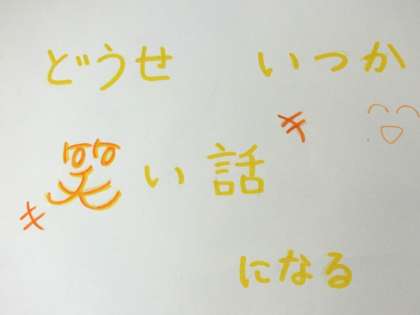 どうせ いつか
笑い話
になる